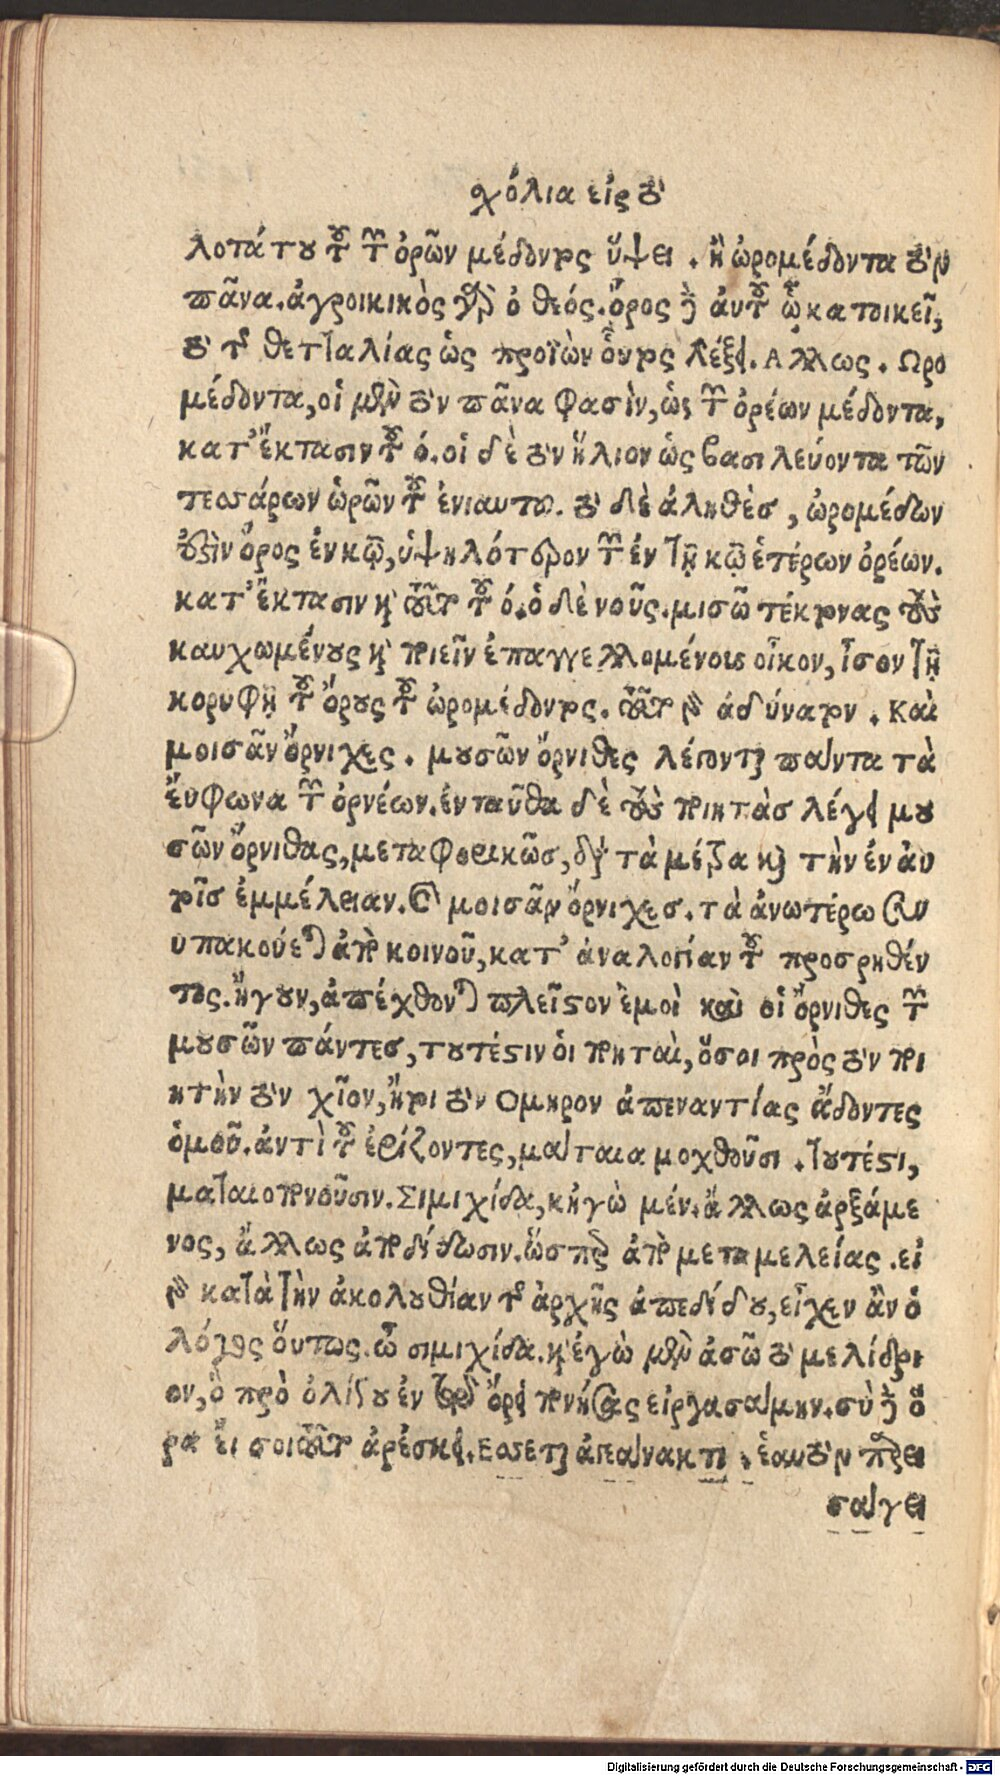 χόλια εἰς τὸ
λοτάτου τοῦ τῶν ὀρῶν μέδοντος ὕψει. ἢ ὠρομέδοντα τὸν
πᾶνα. ἀγροικικὸς γὰρ ὁ θεός. ὄρος δὲ αὐτοῦ ᾧ κατοικεῖ,
τὸ τῆς θετταλίας ὡς προϊὼν οὗτος λέξει. Αλλως. Ωρο
μέδοντα, οἱ μὲν τὸν πᾶνα φασὶν, ὡς τῶν ὀρέων μέδοντα,
κατ' ἔκτασιν τοῦ ό. οἱ δὲ τὸν ἥλιον ὡς βασιλεύοντα τῶν
τεσσάρων ὡρῶν τοῦ ἐνιαυτου. τὸ δὲ ἀληθὲσ, ὠρομέδων
ἐστὶν ὄρος ἐν κῷ, ὑψηλότερον τῶν ἐν τῇ κῷ ἑτέρων ὀρέων.
κατ' ἔκτασιν καὶ τοῦτο τοῦ ό. ὁ δὲ νοῦς. μισῶ τέκτονας τοὺς
καυχωμένους καὶ ποιεῖν ἐπαγγελλομένους οἶκον, ἶσον τῇ
κορυφῇ τοῦ ὄρους τοῦ ὠρομέδοντος. τοῦτο γὰρ ἀδύνατον. Καὶ
μοισᾶν ὄρνιχες. μουσῶν ὄρνιθες λέγονται πάντα τὰ
ἔυφωνα τῶν ὀρνέων. ἐνταῦθα δὲ τοὺς ποιητὰσ λέγει μου
σῶν ὄρνιθας, μεταφορικῶσ, διὰ τὰ μέτρα καὶ τὴν ἐν ἀυ
τοῖσ ἐμμέλειαν. Καὶ μοισᾶν ὄρνιχεσ. τὰ ἀνωτέρω συν
υπακούεται ἀπὸ κοινοῦ, κατ' ἀναλογίαν τοῦ προσρηθέν
τος. ἤγουν, ἀπέχθονται πλεῖστον ἐμοὶ καὶ οἱ ὄρνιθες τῶν
μουσῶν πάντεσ, τουτέστιν ὁι ποιηταὶ, ὅσοι πρὸς τὸν ποι
ητὴν τὸν χῖον, ἤτοι τὸν Ομηρον ἀπεναντίας ἄδοντες
ὁμοῦ. ἀντὶ τοῦ ἐρίζοντες, μάταια μοχθοῦσι. Τουτέστι,
ματαιοπονοῦσιν. Σιμιχίδα, κἠγὼ μέν. ἄλλως ἀρξάμε
νος, ἄλλως ἀποδίδωσιν. ὥσπερ ἀπὸ μεταμελείας. εἰ
γὰρ κατὰ τὴν ἀκολουθίαν τῆς ἀρχῆς ἀπεδίδου, εἶχεν ἂν ὁ
λόγος οὕτως. ὦ σιμιχίδα. καὶ ἐγὼ μὲν ἀσῶ τὸ μελίδρι
ον, ὃ πρὸ ὀλίγου ἐν τῷ ὄρει πονήσας εἰργασάμην. σὺ δὲ ὅ
ρα ἔι σοι τοῦτο ἀρέσκει. Εσσεται ἀπάνακτι. ἑαυτὸν πρει
σάγει